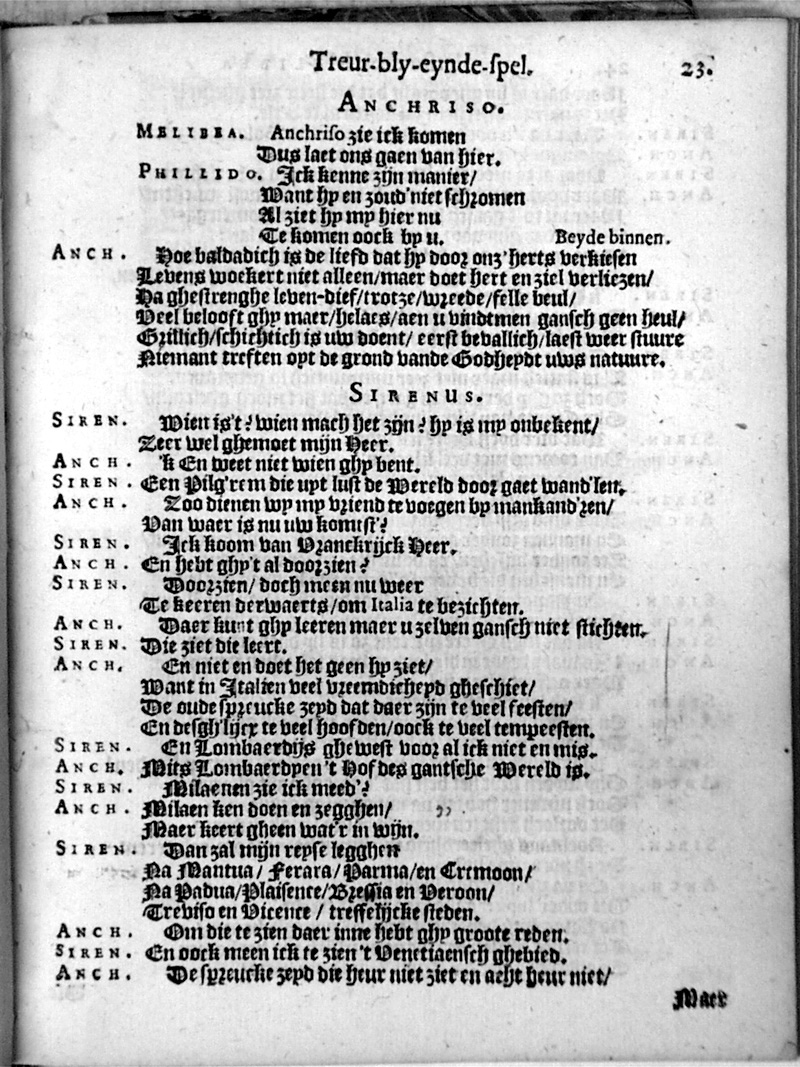 Treur-bly-eynde-spel. 23.
ANCHRISO.
MELIBEA. Anchriso zie ick komen
Dus laet ons gaen van hier.
PHILLIDO. Ick kenne zijn manier/
Want hy en zoud'niet schromen
Al ziet hy my hier nu
Te komen oock by u. Beyde binnen.
ANCH. Hoe baldadich is de liefd dat hy door onz'herts verkiesen
Levens woekert niet alleen/maer doet hert en ziel verliezen/
Ha ghestrenghe leven-dief/trotze/wreede/felle beul/
Veel belooft ghy maer/helaes/aen u vindtmen gansch geen heul/
Grillich/schichtich is uw doent/ eerst bevallich/laest weer stuure
Niemant treften opt de grond vande Godheydt uws natuure.
SIRENUS.
SIREN. Wien is't? wien mach het zijn? hy is my onbekent/
Zeer wel ghemoet mijn Heer.
ANCH. 'k En weet niet wien ghy bent.
SIREN. Een Pilg'rem die uyt lust de Wereld door gaet wand'len.
ANCH. Zoo dienen wy my vriend te voegen by mankand'ren/
Van waer is nu uw komst'?
SIREN. Ick koom van Vranckrijck Heer.
ANCH. En hebt ghy't al doorzien?
SIREN. Doorzien/ doch meen nu weer
Te keeren derwaerts/om Italia te bezichten.
ANCH. Daer kunt ghy leeren maer u zelven gansch niet stichten.
SIREN. Die ziet die leert.
ANCH. En niet en doet het geen hy ziet/
Want in Italien veel vreemdicheyd gheschiet/
De oude spreucke zeyd dat daer zijn te veel feesten/
En desgh'lijcx te veel hoofden/oock te veel tempeesten.
SIREN. En Lombaerdijs ghewest voor al ick niet en mis.
ANCH. Mits Lombaerdyen't Hof des gantsche Wereld is.
SIREN. Milaenen zie ick meed'?
ANCH. Milaen ken doen en zegghen/ ,,
Maer keert gheen wat'r in wijn.
SIREN. Dan zal mijn reyse legghen
Na Mantua/ Ferara/Parma/en Cremoon/
Na Padua/Plaisence/Bressia en Veroon/
Treviso en Vicence / treffelijcke steden.
ANCH. Om die te zien daer inne hebt ghy groote reden.
SIREN. En oock meen ick te zien't Venetiaensch ghebied.
ANCH. De spreucke zeyd die heur niet ziet en acht heur niet/
Maer